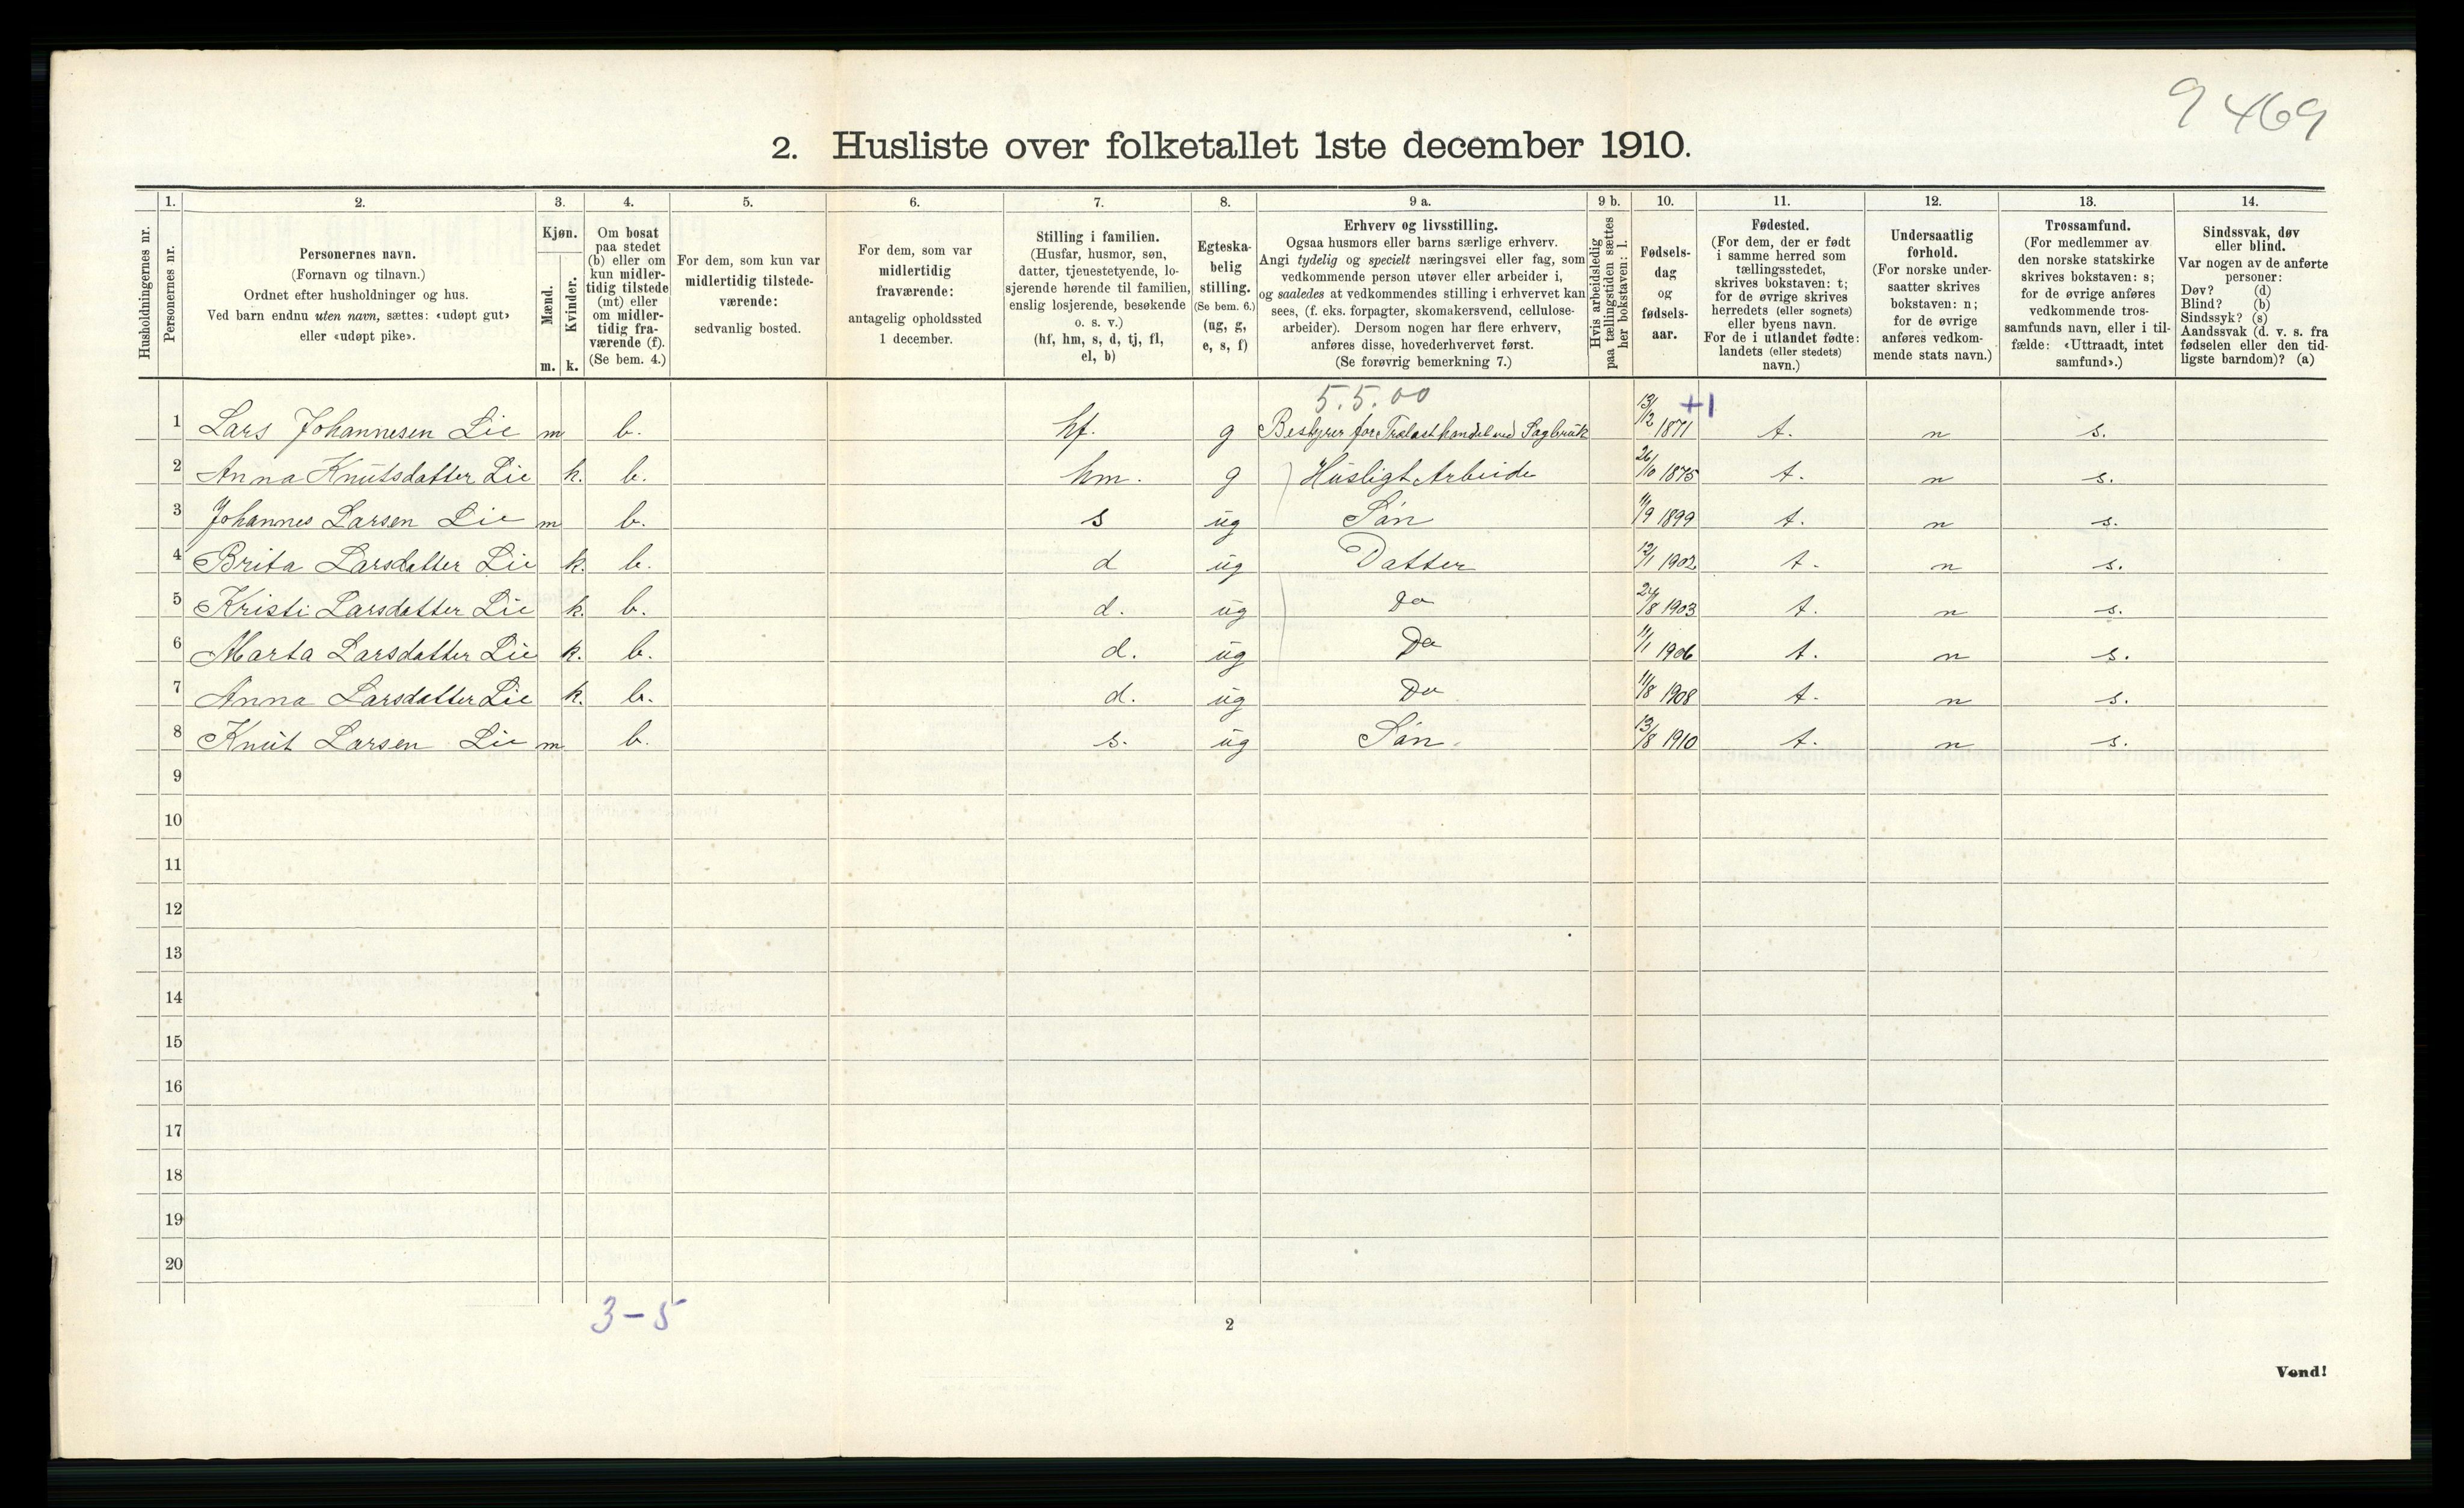 9 469
2. Husliste over folketallet 1ste december 1910.
1. 2. 3. 4. 5. 6. 7. 8. 9 a. 9 b. 10. 11. 12. 13. 14.
Husholdningernes nr.
Personernes nr.
Personernes navn.
(Fornavn og tilnavn.)
Ordnet efter husholdninger og hus.
Ved barn endnu uten navn, sættes: «udøpt gut»
eller «udøpt pike».
Kjøn.
Mænd.
Kvinder.
m. k.
Om bosat
paa stedet
(b) eller om
kun midler-
tidig tilstede
(mt) eller
om midler-
tidig fra-
værende (f).
(Se bem. 4.)
For dem, som kun var
midlertidig tilstede-
værende:
sedvanlig bosted.
For dem, som var
midlertidig
fraværende:
antagelig opholdssted
1 december.
Stilling i familien.
(Husfar, husmor, søn,
datter, tjenestetyende, lo-
sjerende hørende til familien,
enslig losjerende, besøkende
o. s. v.)
(hf, hm, s, d, tj, fl,
el, b)
Egteska-
belig
stilling.
(Se bem. 6.)
(ug, g,
e, s, f)
Erhverv og livsstilling.
Ogsaa husmors eller barns særlige erhverv.
Angi tydelig og specielt næringsvei eller fag, som
vedkommende person utøver eller arbeider i,
og saaledes at vedkommendes stilling i erhvervet kan
sees, (f. eks. forpagter, skomakersvend, cellulose-
arbeider). Dersom nogen har flere erhverv,
anføres disse, hovederhvervet først.
(Se forøvrig bemerkning 7.)
Hvis arbeidsledig
paa tællingstiden sættes
her bokstaven: l.
Fødsels-
dag
og
fødsels-
aar.
Fødested.
(For dem, der er født
i samme herred som
tællingsstedet,
skrives bokstaven: t;
for de øvrige skrives
herredets (eller sognets)
eller byens navn.
For de i utlandet fødte:
landets (eller stedets)
navn.)
Undersaatlig
forhold.
(For norske under-
saatter skrives
bokstaven: n;
for de øvrige
anføres vedkom-
mende stats navn.)
Trossamfund.
(For medlemmer av
den norske statskirke
skrives bokstaven: s;
for de øvrige anføres
vedkommende tros-
samfunds navn, eller i til-
fælde: «Uttraadt, intet
samfund».)
Sindssvak, døv
eller blind.
Var nogen av de anførte
personer:
Døv? (d)
Blind? (b)
Sindssyk? (s)
Aandssvak (d. v. s. fra
fødselen eller den tid-
ligste barndom)? (a)
5.5.00
+1
1 Lars Johannesen Lie m b. hf. g Bestyrer for Trælasthandel med Sagbruk 13/12 1871 t. n s.
2 Anna Knutsdatter Lie k. b. hm. g Husligt Arbeide 26/10 1875 t. n s.
3 Johannes Larsen Lie m b. s ug Søn 11/9 1899 t. n s.
4 Brita Larsdatter Lie k. b. d ug Datter 12/1 1902 t. n s.
5 Kristi Larsdatter Lie k. b. d. ug Do 24/8 1903 t. n s.
6 Marta Larsdatter Lie k. b. d. ug Do 11/1 1906 t. n s.
7 Anna Larsdatter Lie k. b. d. ug Do 11/8 1908 t. n s.
8 Knut Larsen Lie m b. s. ug Søn 13/8 1910 t. n s.
9
10
11
12
13
14
15
16
17
18
19
20
3-5
2
Vend!